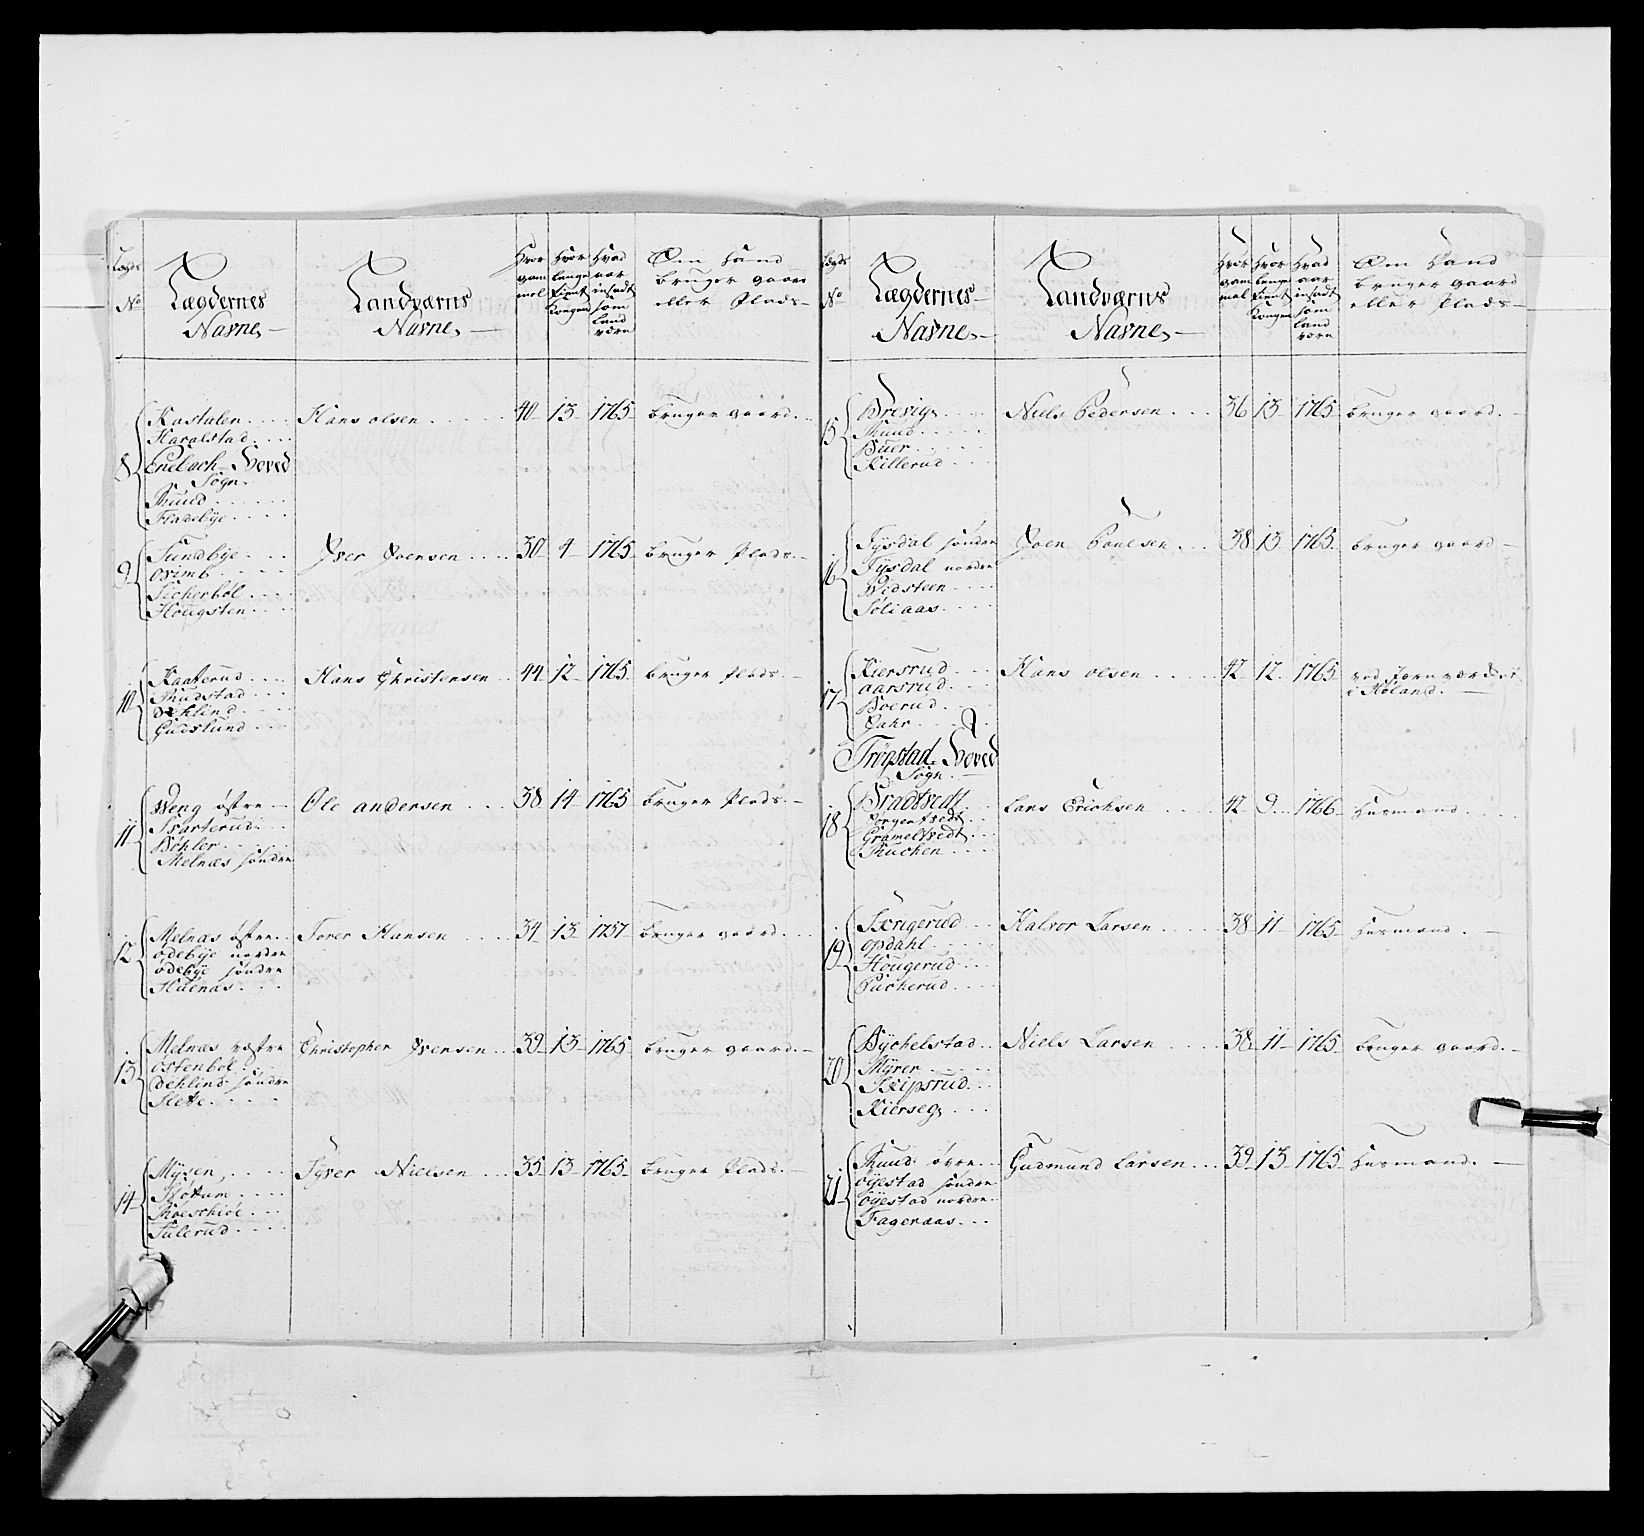 Lægdernes Navne
Landværns Navne
Hvor gammel
Hvor lenge tient Kongen
Hvad aar indsadt som Land værn
Om hand bruger gaard eller Plads
Kastalen
Haralstad
Hans olsen 40 13 1765 bruger gaard
8
Enebach Hoved Sogn
Ruud
Fladebye
9
Sundbye
Sicherböl
Hougsten
30 4 1765 bruger Plads
10
Kaaterud
Rudstad
Gudslund
Hans Christensen 44 12 1765 bruger Plads
11
Weng östre
Svarterud
Böhler
Melnæs söndre
Ole andersen 38 14 1765 bruger Plads
12
Melnæs östre
ödebye nordre
ödebye söndre
Huenæs
Torer Hansen 34 13 1757 bruger gaard
13
Melnæs vestre
östenböl
Deklind söndre
Slette
Christopher Iversen 39 13 1765 bruger gaard
14
Mysen
Slottum
Sulerud
Syver Nielsen 35 13 1765 bruger Plads
Lægdernes Navne
Landværns Navne
Hvor gammel
Hvor lenge tient Kongen
Hvad aar indsadt som Land værn
Om hand bruger gaard eller Plads
15
Brevig
Ruud
Buer
Killerud
Niels Pedersen 36 13 1765 bruger gaard
16
Tysdal söndre
Tysdal nordre
Vidsteen
Soliaas
Joen Poulsen 38 13 1765 bruger gaard
17
Kiersrud
aarsrud
Boerud
Hans olsen 42 12 1765 ved Jernværket
i Höland
Trögstad Hoved
Sogn
18
Bradtvedt
Grameltvedt
Ruchen
Lars Erichsen 42 9 1766 Husmand
19
Sængerud
opdahl
Hougerud
Puckerud
Halvor Larsen 38 11 1765 Husmand
20
Bychelstad
Myrer
Skipsrud
Kierseg
Niels Larsen 38 11 1765 bruger gaard
21
Ruud övre
öyestad söndre
öyestad nordre
Fageraas
Gudmund Larsen 39 13 1765 Husmand